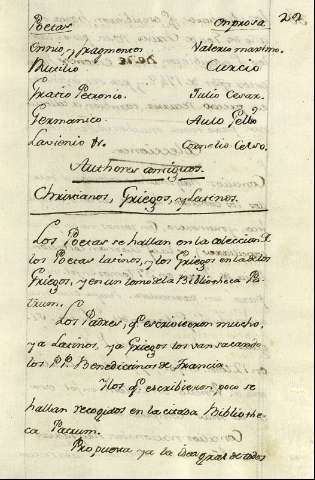 22
Poetas En prosa
Ennio, y fragmentos Valerio maximo.
Rutilio Curcio
Gratio Petronio. Julio Cesar.
Germanico. Aulo Gellio
Lavienio Cornelio Celso.
Authores antiguos.
Christianos, Griegos, y Latinos.
Los Poetas se hallan en la coleccion de
los Poetas latinos, y los Griegos en la de los
Griegos, y en un tomo de la Bibliotheca Pa-
trum.
Los Padres, q.e escrivieron mucho,
ya Latinos, ya Griegos los van sacando
los P.P. Benedictinos de Francia.
Y los q.e escribieron poco se
hallan recogidos en la citada Bibliothe-
ca Patrum.
Propuesta ya la idea gral de todos